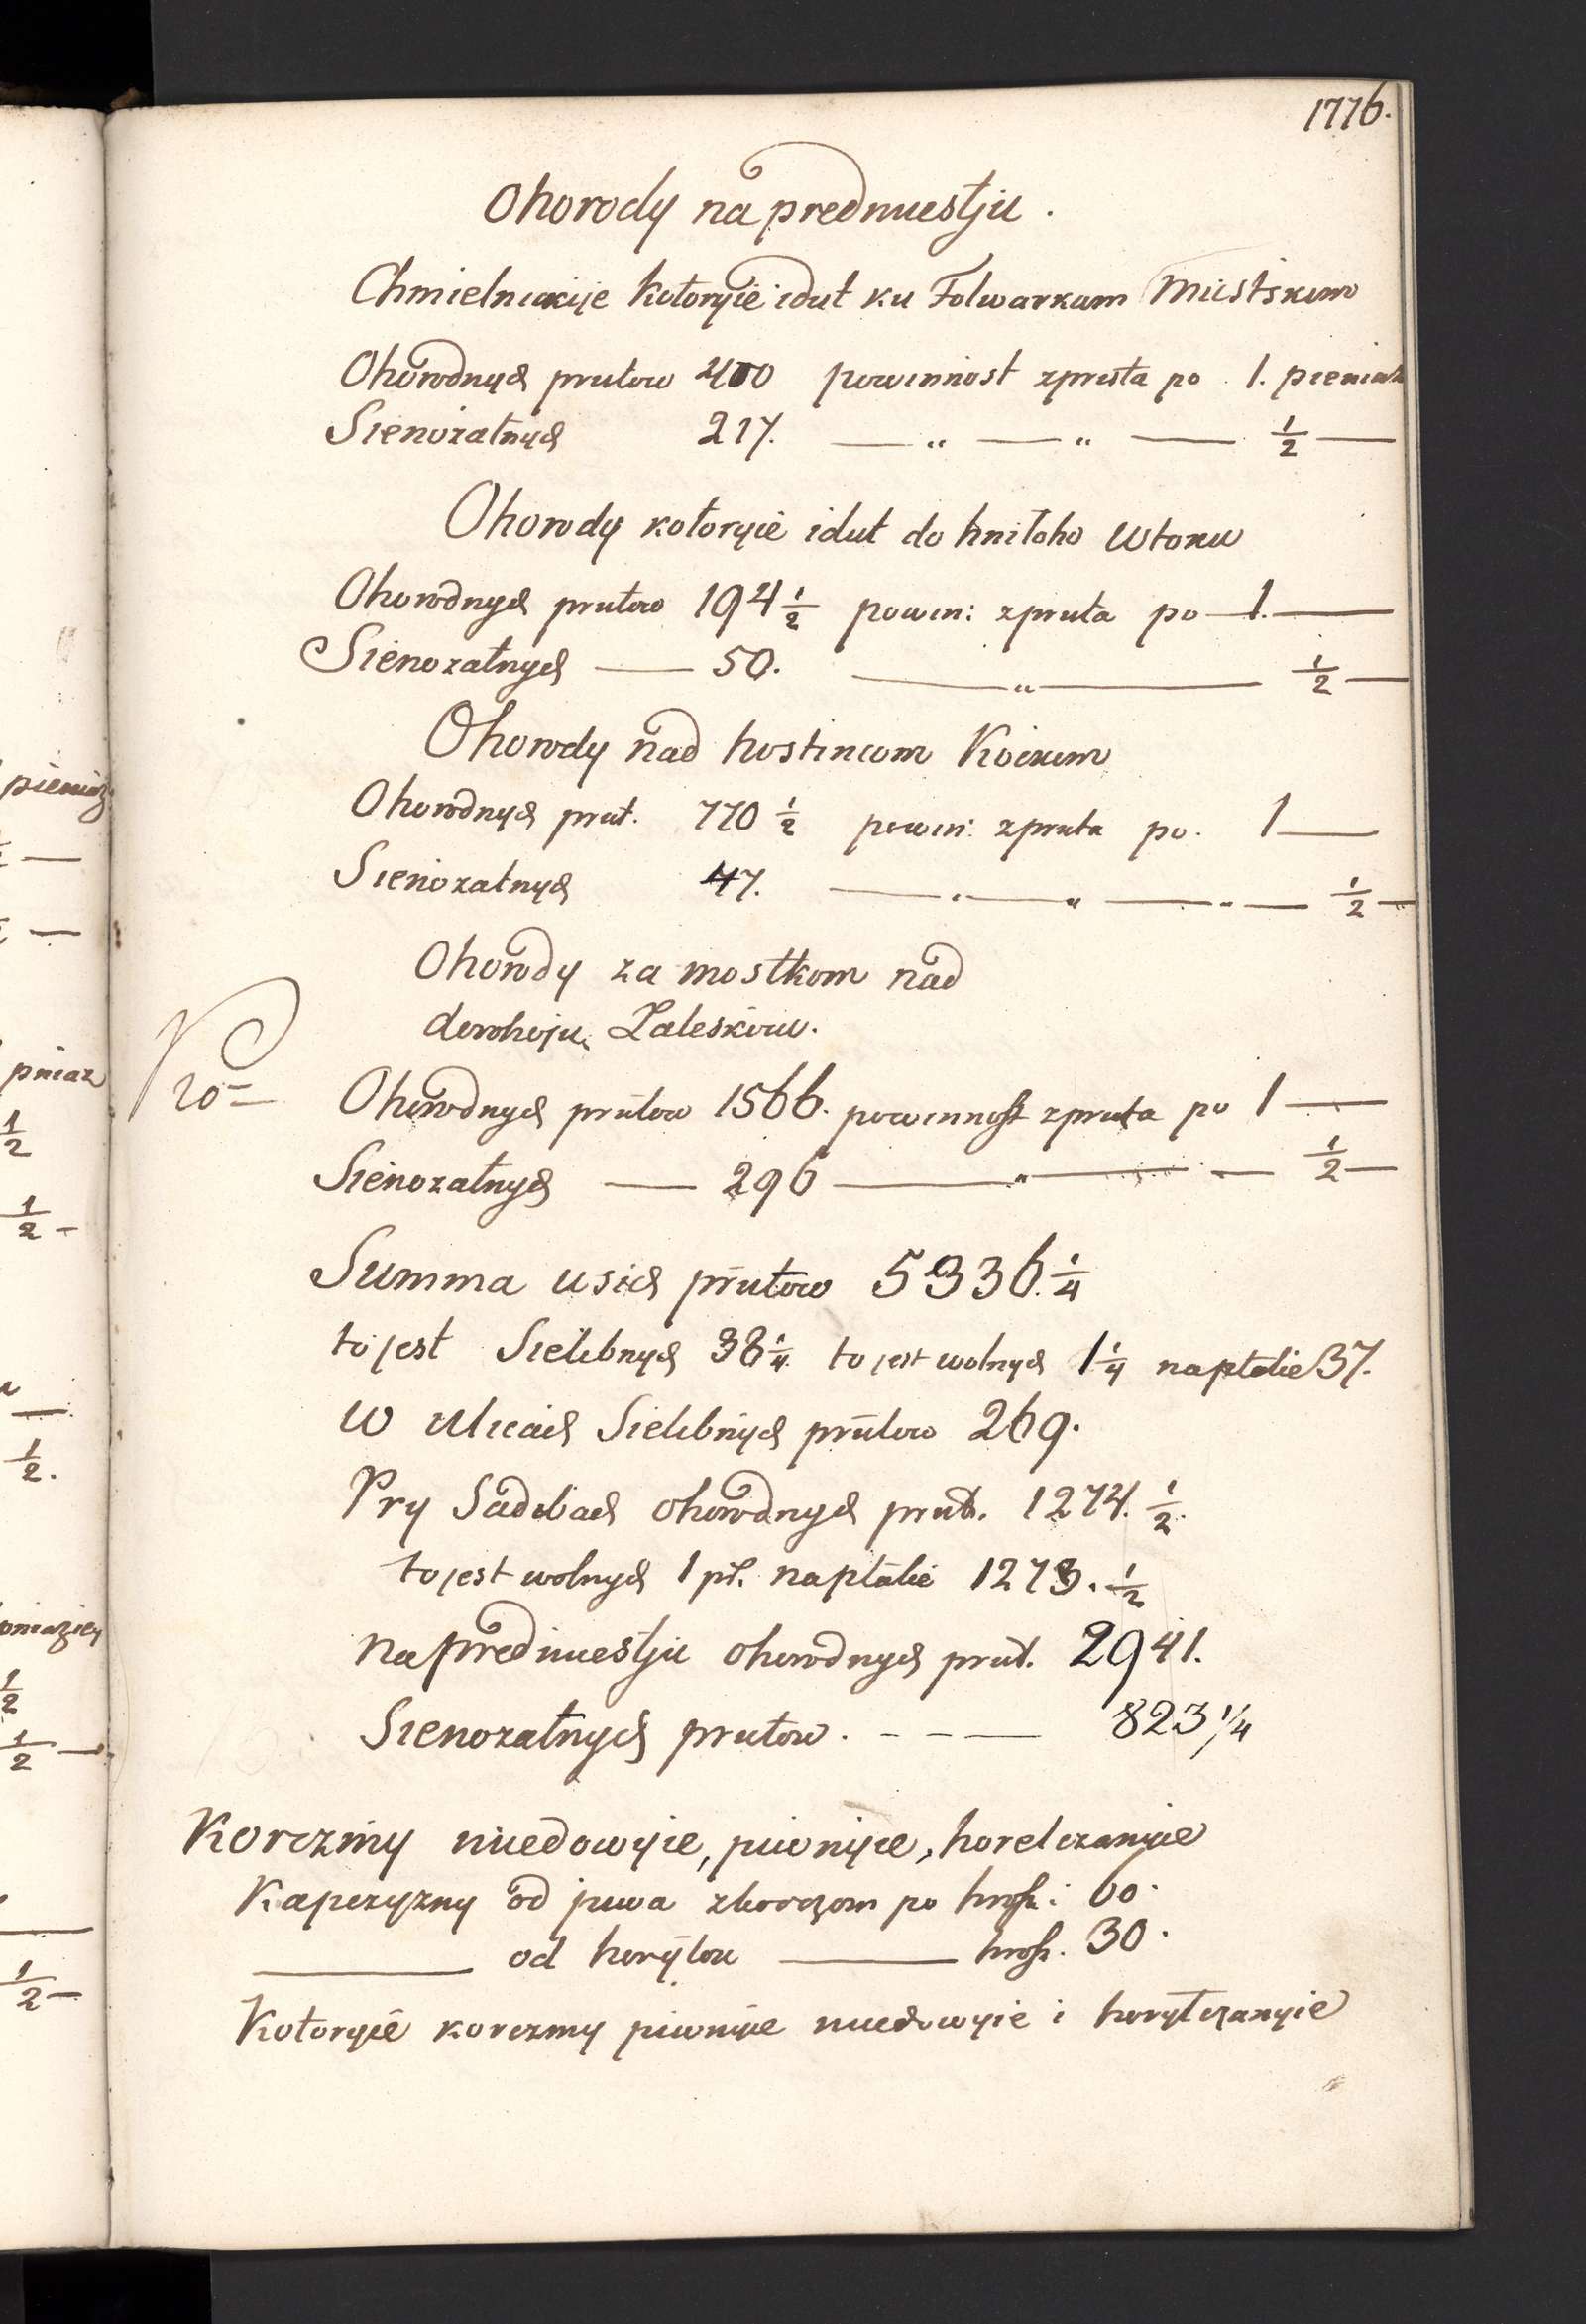 1776.
Ohorody na predmiestju.
Chmielnickije kotoryie idut ku Folwarkam Miestskim
Ohorodnych prutow 400 powinnost zpruta po 1. pieniaz
Sienozatnych 217. — „ — „ — 1/2 —
Ohorody kotoryie idut do hnitoho Wtoku
Ohorodnych prutow 194 1/2 powin: zpruta po — 1. —
Sienozatnych — 50. — „ — 1/2 —
Ohorody nad hostincom
Ohorodnych prut. 770 1/2 powin: zpruta po. 1 —
Sienozatnych 47. — „ — „ — „ — 1/2 —
Ohorody za mostkom nad
dorohoju Zaleskoiu.
Ohorodnych prutow 1566. powinnost zpruta po 1 —
Sienozatnych — 296 — „ — 1/2 —
Summa usich prutow 5336. 1/4
to jest Sielibnych 38 1/4 to jest wolnych 1 1/4 naplatie 37.
W Ulicach Sielibnych prutow 269.
Pry Sadibach ohorodnych prut. 1274. 1/2.
to jest wolnych 1 pr. naplatie 1273. 1/2
na predmiestju ohorodnych prut. 2941.
Sienozatnych prutow. - - — 823 1/4
Korczmy miedowyie, piwnyie, horelczanyie
Kapczyzny od piwa zkorczom po hrosz: 60.
— od horylou — hrosz. 30.
Kotoryie korczmy piwnyie miedowyie i horyłczanyie
pieniaz
—
—
pniaz
1/2
1/2 -
—
1/2.
pniaziey
1/2
1/2 —
—
1/2 -